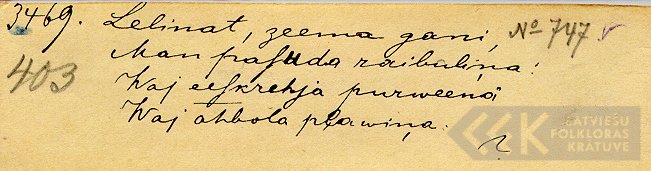 3469. Lelinat, zeema gani, № 747 v
403 Man pasuda raibaliņa:
Waj eeskrehja purweenâ
Waj ahbola pļawiņa.
LATVIEŠU
FOLKLORAS
KRĀTUVE